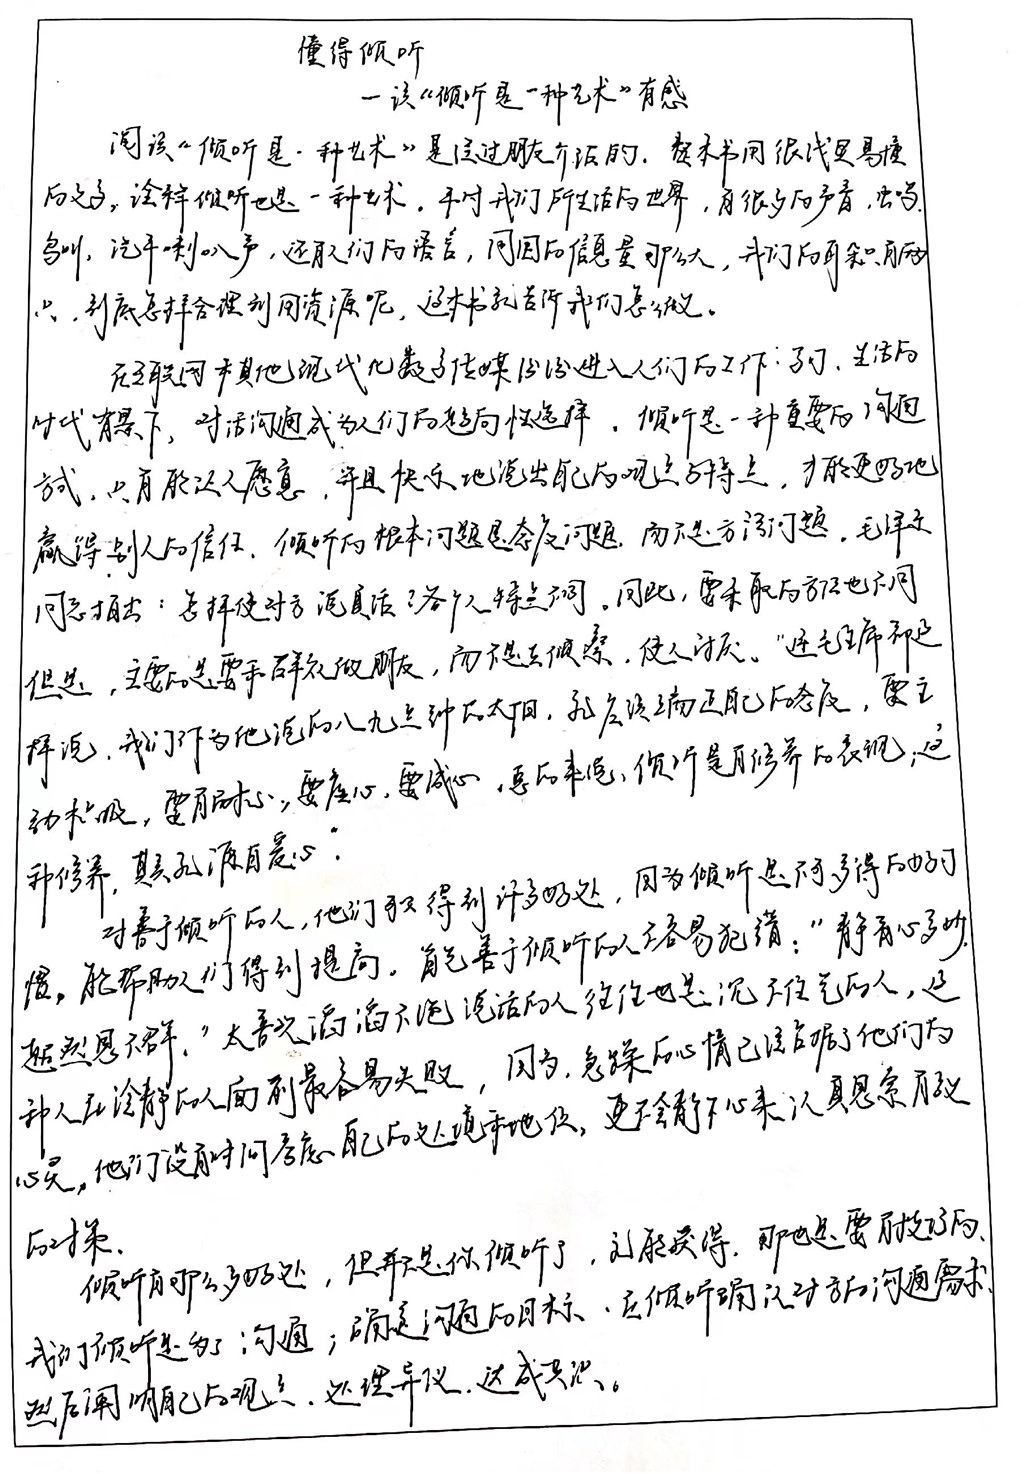 懂得倾听
—读“倾听是一种艺术”有感
阅读“倾听是一种艺术”是经过朋友介绍的，整本书用很浅显易懂
的文字，诠释倾听也是一种艺术。平时我们所生活的世界，有很多的声音，虫鸣、
鸟叫，汽车喇叭声，还有人们的语言，周围的信息量那么大，我们的耳朵只有两
只，到底怎样合理利用资源呢，这本书就告诉我们怎么做。
在互联网和其他现代化数字传媒纷纷进入人们的工作、学习、生活的
时代背景下，对话沟通成为人们的趋向性选择，倾听是一种重要的沟通
方式，只有能让人愿意，并且快乐地说出自己的观点与特点，才能更好地
赢得别人的信任，倾听的根本问题是态度问题，而不是方法问题，毛泽东
同志指出：怎样使对方说真话？各个人特点不同。因此，要采取的方法也不同
但是，主要的是要和群众做朋友，而不是去侦察，使人讨厌。”连毛主席都这
样说，我们作为他说的八九点钟的太阳，就应该端正自己的态度，要主
动积极，要有耐心，要虚心，要诚心，总的来说，倾听是有修养的表现，这
种修养，其实就源自爱心”。
对善于倾听的人，他们可获得到许多好处，因为倾听是不可多得的好习
惯，能帮助人们得到提高。首先善于倾听的人不容易犯错：“静有心多妙，
超然思不群。”太喜欢滔滔不绝说话的人往往也是沉不住气的人，这
种人在冷静的人面前最容易失败，因为，急躁的心情已经占据了他们的
心灵，他们没有时间考虑自己的处境和地位，更不会静下心来认真思索有效
的对策。
倾听有那么多好处，但并不是你倾听了，就能获得，那也是要有技巧的、
我们倾听是为了沟通；确定沟通的目标、在倾听确认对方的沟通需求、
然后阐明自己的观点、处理异议、达成共识。